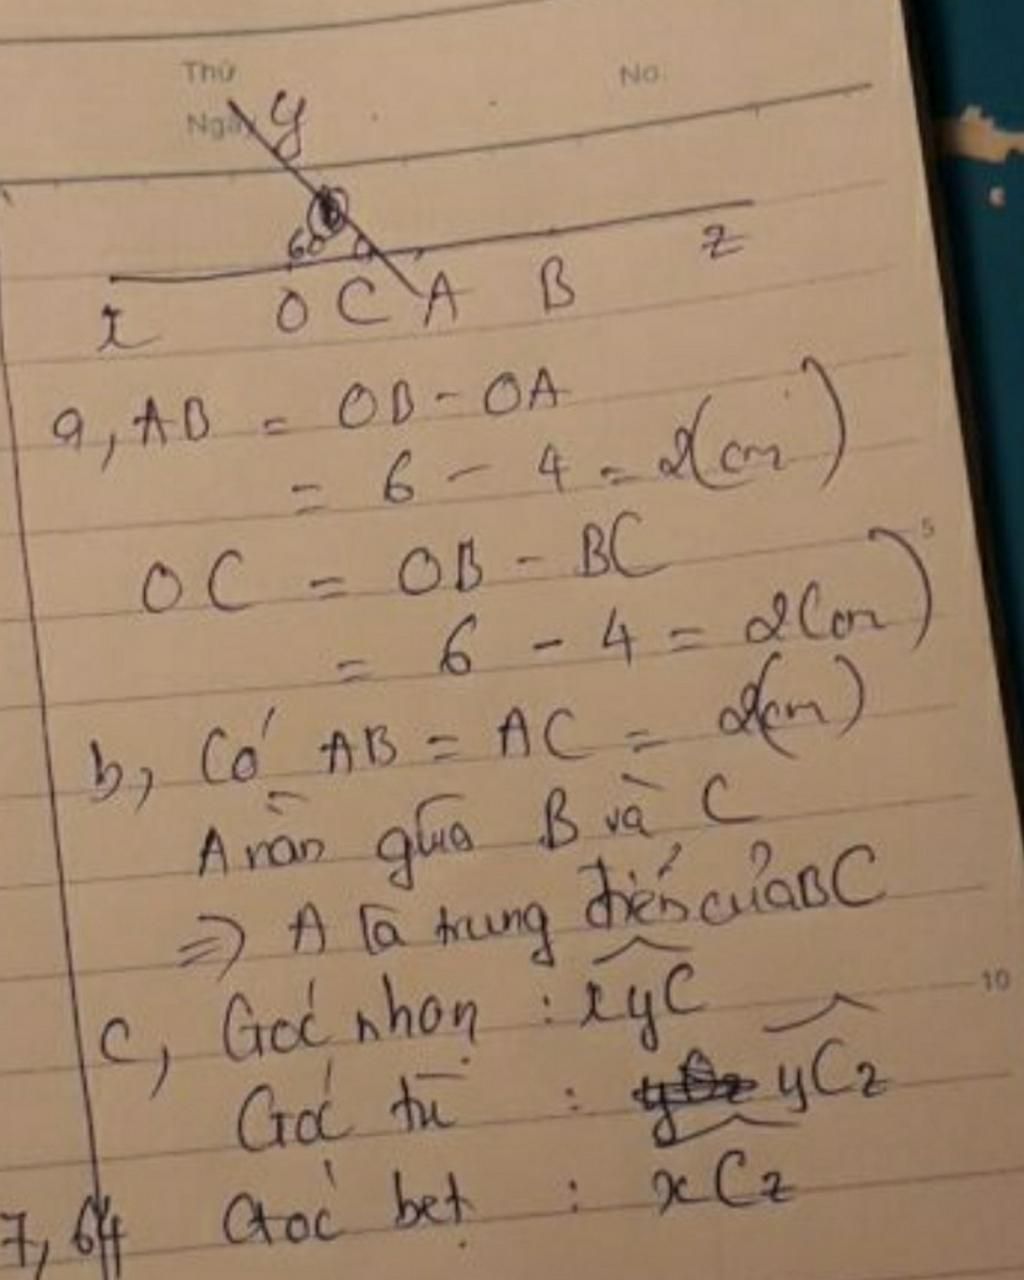 Thứ
No.
Ngày
y
60
z
x O C A B
a, AB = OB - OA
= 6 - 4 = 2(cm)
OC = OB - BC
= 6 - 4 = 2(cm)
b, Có AB = AC = 2(cm)
A nằn giữa B và C
=> A là trung điển của BC
5
c, Góc nhọn : xyC
10
Góc tù : yCz
Góc bẹt : xCz
7, 64